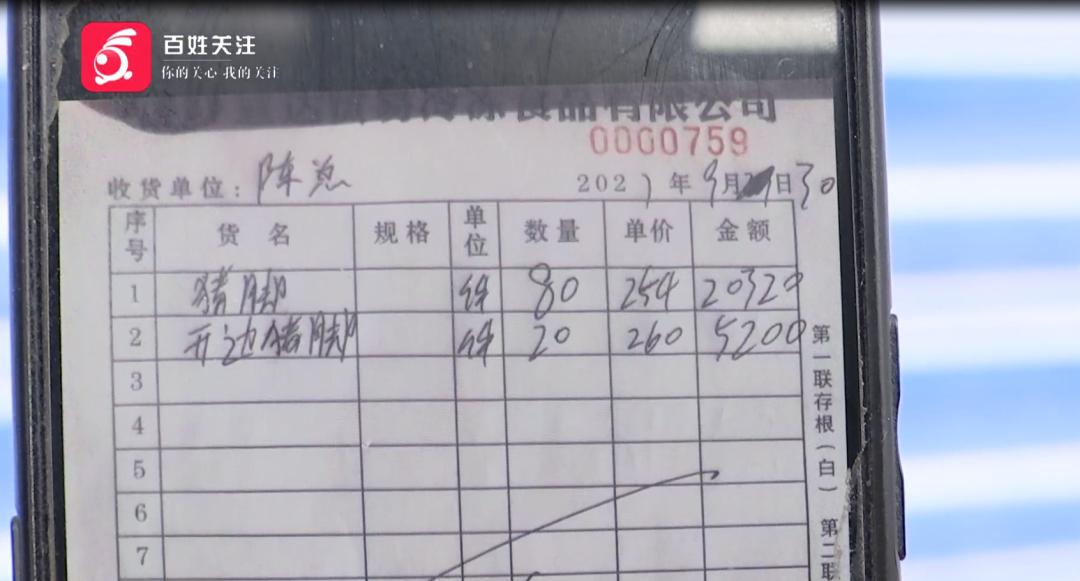 百姓关注
你的关心 我的关注
冷冻食品有限公司
0000759
收货单位: 陈总 2021年9月日30
序号 货名 规格 单位 数量 单价 金额
1 猪脚 件 80 254 20320
2 开边猪脚 件 20 260 5200
3
4
5
6
7
第一联存根(白) 第二联